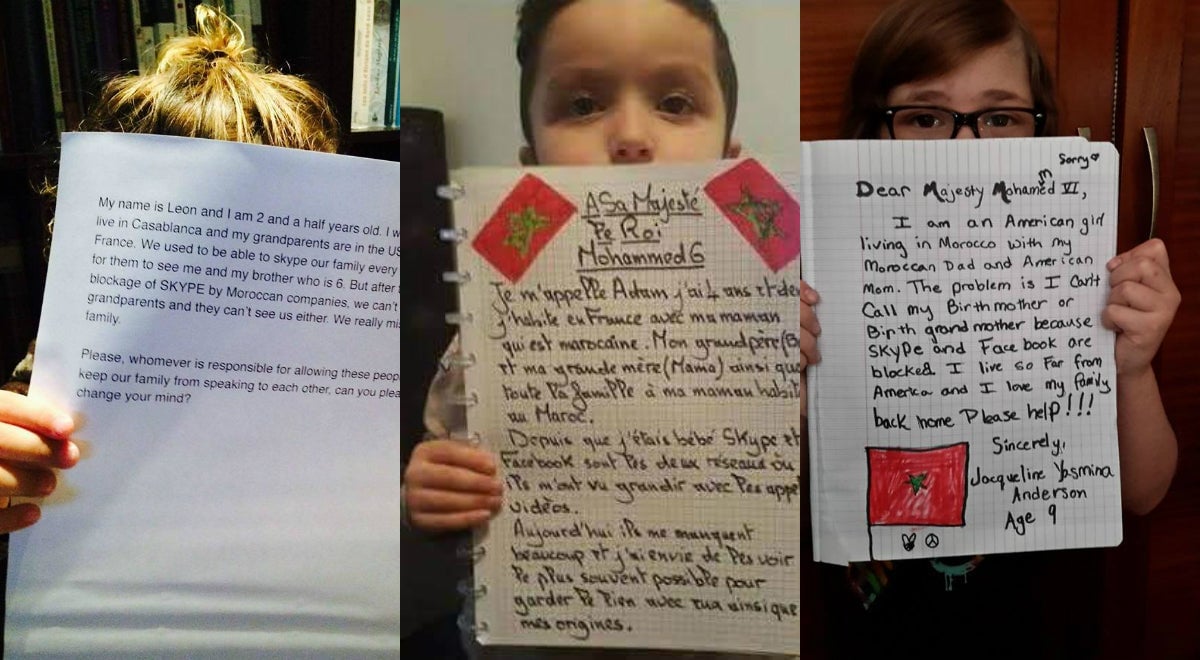 My name is Leon and I am 2 and a half years old. I w
live in Casablanca and my grandparents are in the US
France. We used to be able to skype our family every
for them to see me and my brother who is 6. But after
blockage of SKYPE by Moroccan companies, we can't
grandparents and they can't see us either. We really mis
family.
Please, whomever is responsible for allowing these peop
keep our family from speaking to each other, can you plea
change your mind?
A Sa Majesté
Le Roi
Mohammed 6
Je m'appelle Adam j'ai 4 ans et de
j'habite en France avec ma maman
qui est marocaine. Mon grand père (B
et ma grande mère (Mama) ainsi que
toute la famille à ma maman habit
au Maroc.
Depuis que j'étais bébé Skype et
Facebook sont les deux réseaux où
ils m'ont vu grandir avec les appe
vidéos.
Aujourd'hui ils me manquent
beaucoup et j'ai envie de les voir
le plus souvent possible pour
garder le lien avec eux ainsi que
mes origines.
Sorry
Dear Majesty Mohamed VI,
I am an American girl
living in Morocco with my
Moroccan Dad and American
Mom. The problem is I can't
Call my Birthmother or
Birth grandmother because
SKYPe and Facebook are
blocked. I live so far from
America and I love my family
back home Please help!!!
Sincerely,
Jacqueline Yasmina
Anderson
Age 9